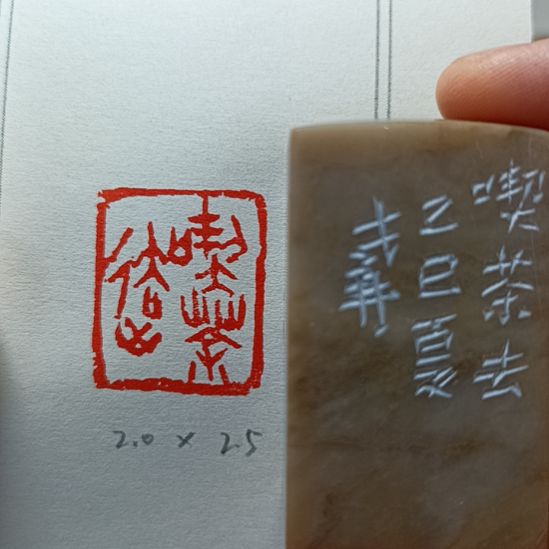 喫茶
去
2.0 × 2.5
喫茶去
乙巳夏